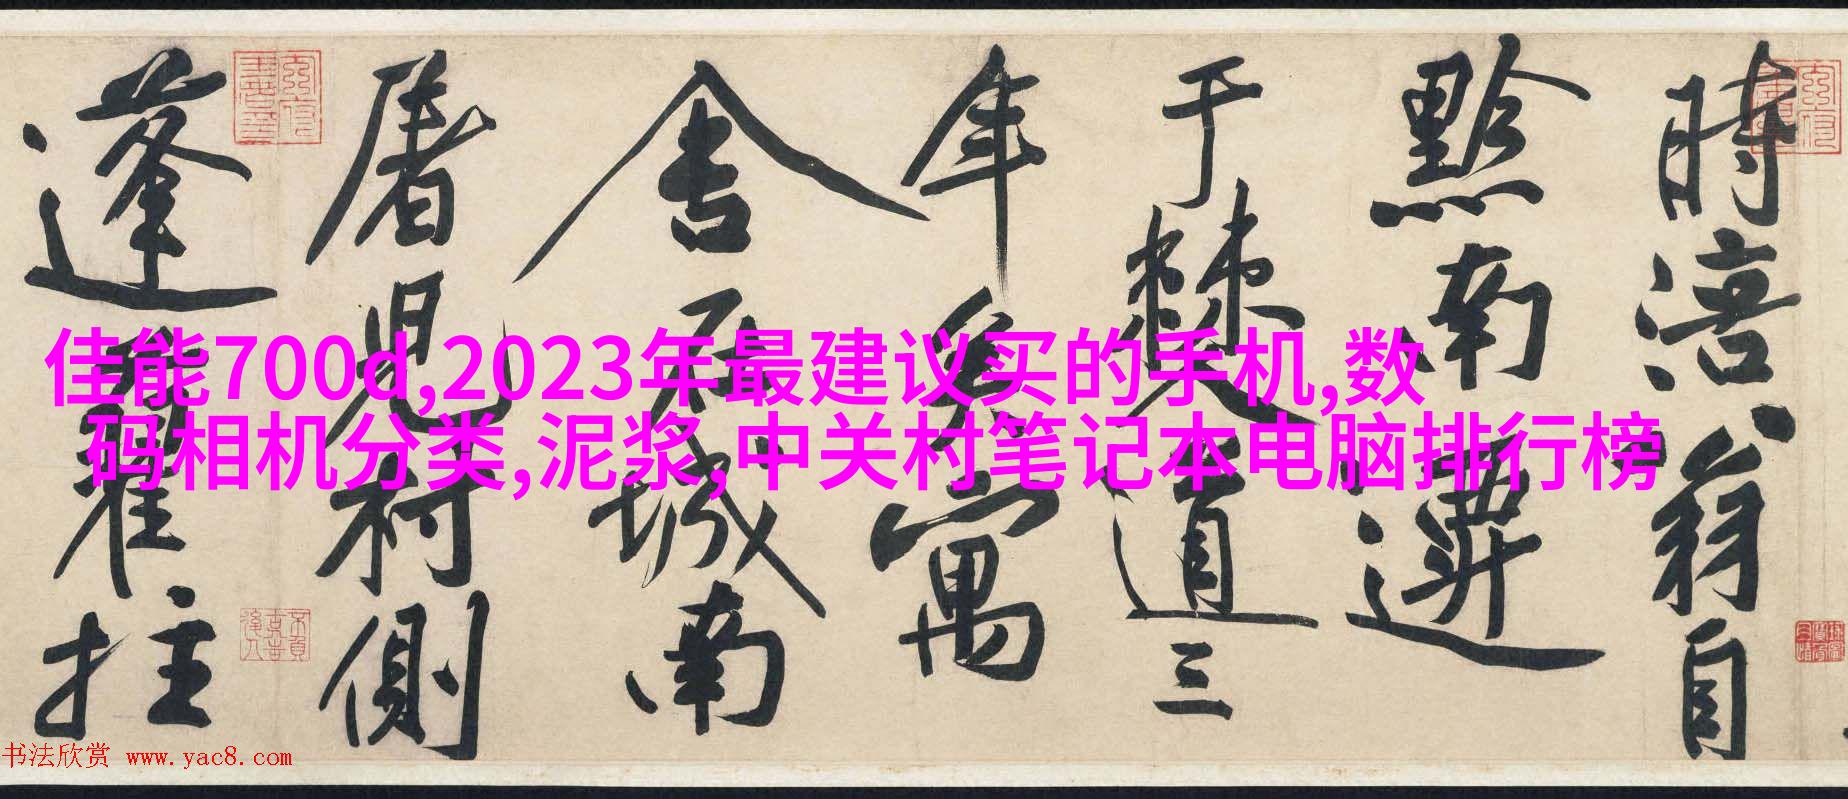 時涪翁自
黔南遷
于僰道三
年矣寓
舍在城南
屠兒村側
蓬藋拄
佳能700d,2023年最建议买的手机,数
码相机分类,泥浆,中关村笔记本电脑排行榜
书法欣赏 www.yac8.com